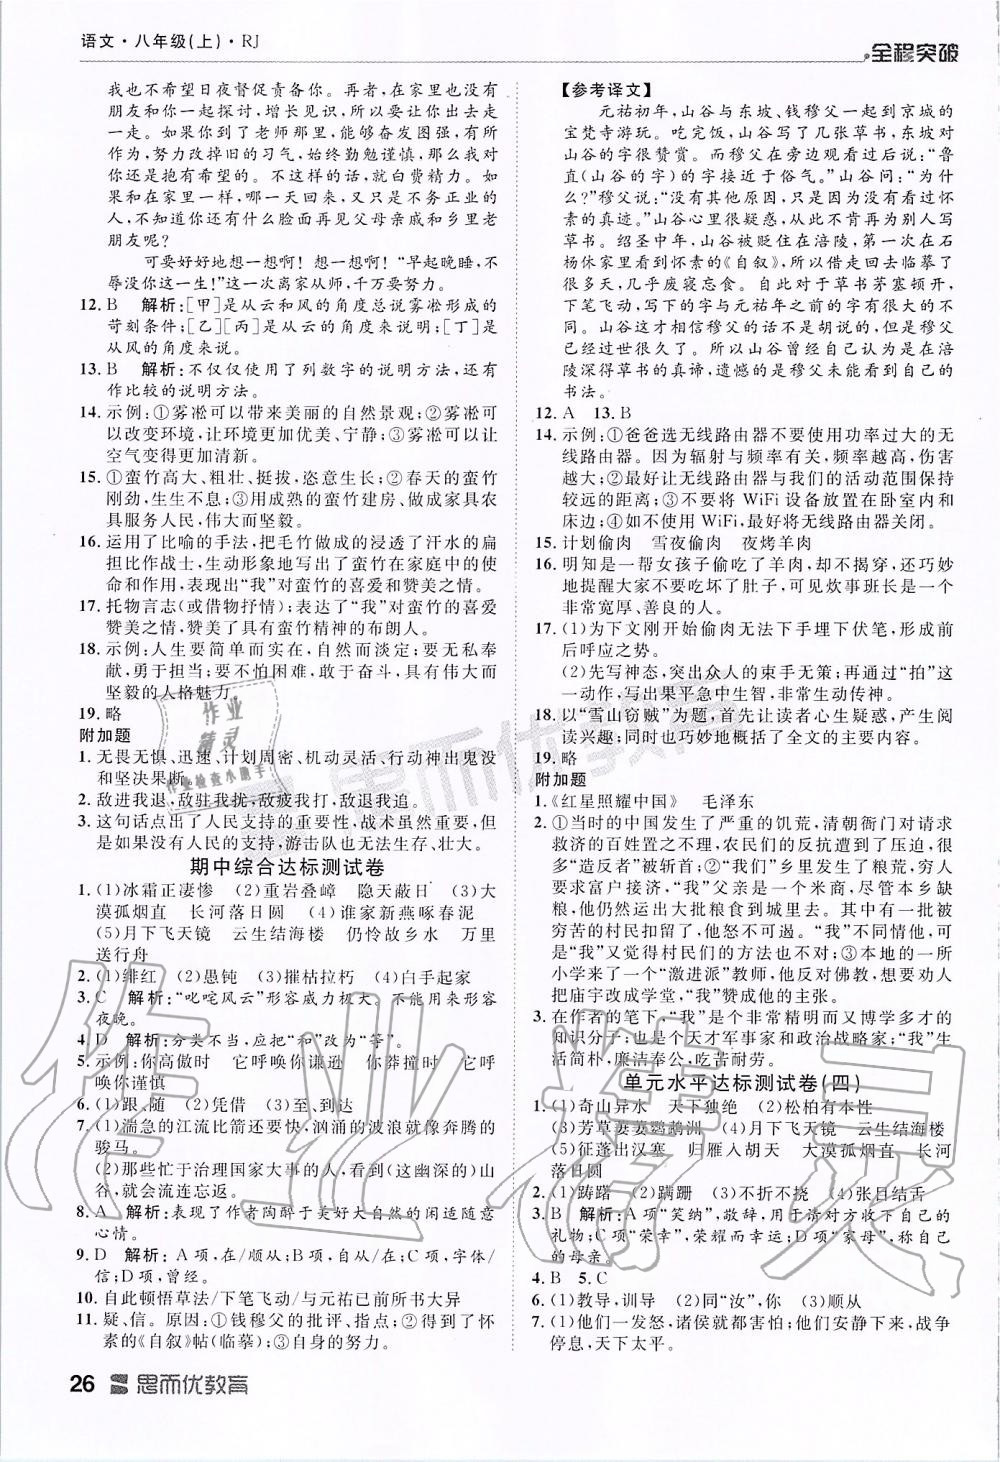 语文·八年级(上)·RJ
全程突破
我也不希望日夜督促责备你。再者,在家里也没有
朋友和你一起探讨,增长见识,所以要让你出去走
一走。如果你到了老师那里,能够奋发图强,有所
作为,努力改掉旧的习气,始终勤勉谨慎,那么我对
你还是抱有希望的。不这样的话,就白费精力。如
果和在家里一样,哪一天回来,又只是不务正业的
人,不知道你还有什么脸面再见父母亲戚和乡里老
朋友呢?
可要好好地想一想啊!想一想啊!“早起晚睡,不
辱没你这一生!”这一次离家从师,千万要努力。
12. B 解析:[甲]是从云和风的角度总说雾凇形成的
苛刻条件;[乙][丙]是从云的角度来说明;[丁]是
从风的角度来说。
13. B 解析:不仅仅使用了列数字的说明方法,还有
作比较的说明方法。
14. 示例:①雾凇可以带来美丽的自然景观;②雾凇可
以改变环境,让环境更加优美、宁静;③雾凇可以让
空气变得更加清新。
15. ①蛮竹高大、粗壮、挺拔,恣意生长;②春天的蛮竹
刚劲,生生不息;③用成熟的蛮竹建房、做成家具农
具服务人民,伟大而坚毅。
16. 运用了比喻的手法,把毛竹做成的浸透了汗水的扁
担比作战士,生动形象地写出了蛮竹在家庭中的使
命和作用,表现出“我”对蛮竹的喜爱和赞美之情。
17. 托物言志(或借物抒情);表达了“我”对蛮竹的喜爱
赞美之情,赞美了具有蛮竹精神的布朗人。
18. 示例:人生要简单而实在,自然而淡定;要无私奉
献,勇于担当;要不怕困难,敢于奋斗,具有伟大而
坚毅的人格魅力。
19. 略
附加题
1. 无畏无惧、迅速、计划周密、机动灵活、行动神出鬼没
和坚决果断。
2. 敌进我退,敌驻我扰,敌疲我打,敌退我追。
3. 这句话点出了人民支持的重要性,战术虽然重要,但
如果没有人民的支持,游击队也无法生存、壮大。
期中综合达标测试卷
1. (1)冰霜正凄惨 (2)重岩叠嶂 隐天蔽日 (3)大
漠孤烟直 长河落日圆 (4)谁家新燕啄春泥
(5)月下飞天镜 云生结海楼 仍怜故乡水 万里
送行舟
2. (1)绯红 (2)愚钝 (3)摧枯拉朽 (4)白手起家
3. C 解析:“叱咤风云”形容威力极大。不能用来形容
夜晚。
4. D 解析:分类不当,应把“和”改为“等”。
5. 示例:你高傲时 它呼唤你谦逊 你莽撞时 它呼
唤你谨慎
6. (1)跟、随 (2)凭借 (3)至、到达
7. (1)湍急的江流比箭还要快,汹涌的波浪就像奔腾的
骏马。
(2)那些忙于治理国家大事的人,看到(这幽深的)山
谷,就会流连忘返。
8. A 解析:表现了作者陶醉于美好大自然的闲适随意
心情。
9. D 解析:A项,在/顺从;B项,自从/从;C项,相信/
信;D项,曾经。
10. 自此顿悟草法/下笔飞动/与元祐已前所书大异
11. 疑、信。原因:①钱穆父的批评、指点;②得到了怀
素的《自叙》帖(临摹);③自身的努力。
【参考译文】
元祐初年,山谷与东坡、钱穆父一起到京城的
宝梵寺游玩。吃完饭,山谷写了几张草书,东坡对
山谷的字很赞赏。而穆父在旁边观看过后说:“鲁
直(山谷的字)的字接近于俗气。”山谷问:“为什
么?”穆父说:“没有其他原因,只是因为没看过怀
素的真迹。”山谷心里很疑惑,从此不肯再为别人写
草书。绍圣中年,山谷被贬住在涪陵,第一次在石
杨休家里看到怀素的《自叙》,所以借走回去临摹了
很多天,几乎废寝忘食。自此对于草书茅塞顿开,
下笔飞动,写下的字与元祐年之前的字有很大的不
同。山谷这才相信穆父的话不是胡说的,但是穆父
已经过世很久了。所以山谷曾经自己认为只有到涪
陵深得草书的真谛,遗憾的是穆父未能看见自己的
书法。
12. A 13. B
14. 示例:①爸爸选无线路由器不要使用功率过大的无
线路由器。因为辐射与频率有关,频率越高,伤害
越大;②最好让无线路由器与我们的活动范围保持
较远的距离;③不要将 WiFi 设备放置在卧室内和
床边;④如不使用 WiFi,最好将无线路由器关闭。
15. 计划偷肉 雪夜偷肉 夜烤羊肉
16. 明知是一帮女孩子偷吃了羊肉,却不揭穿,还巧妙
地提醒大家不要吃坏了肚子,可见炊事班长是一个
非常宽厚、善良的人。
17. (1)为下文刚开始偷肉无法下手埋下伏笔,形成前
后呼应之势。
(2)先写神态,突出众人的束手无策;再通过“拍”这
一动作,写出果平急中生智,非常生动传神。
18. 以“雪山窃贼”为题,首先让读者心生疑惑,产生阅
读兴趣;同时也巧妙地概括了全文的主要内容。
19. 略
附加题
1. 《红星照耀中国》 毛泽东
2. ①当时的中国发生了严重的饥荒,清朝衙门对请求
救济的百姓置之不理,农民们的反抗遭到了压迫,很
多“造反者”被斩首;②“我们”乡里发生了粮荒,穷人
要求富户接济,“我”父亲是一个米商,尽管本乡缺
粮,他仍然运出大批粮食到城里去。其中有一批被
穷苦的村民扣留了,他怒不可遏。“我”不同情他,可
是“我”又觉得村民们的方法也不对;③本地的一所
小学来了一个“激进派”教师,他反对佛教,想要劝人
把庙宇改成学堂,“我”赞成他的主张。
3. 在作者的笔下,“我”是个非常精明而又博学多才的
知识分子;也是个天才军事家和政治战略家;“我”生
活简朴,廉洁奉公,吃苦耐劳。
单元水平达标测试卷(四)
1. (1)奇山异水 天下独绝 (2)松柏有本性
(3)芳草萋萋鹦鹉洲 (4)月下飞天镜 云生结海楼
(5)征蓬出汉塞 归雁入胡天 大漠孤烟直 长河
落日圆
2. (1)踌躇 (2)蹒跚 (3)不折不挠 (4)张目结舌
3. B 解析:A项“笑纳”,敬辞,用于请对方收下自己的
礼物;C项“荣幸”,荣耀而幸运;D项“家母”,称自己
的母亲。
4. B 5. C
6. (1)教导,训导 (2)同“汝”,你 (3)顺从
7. (1)他们一发怒,诸侯就都害怕;他们安静下来,战争
停息,天下太平。
26
思而优教育
思而优教育
作业精灵
作业精灵
作业检查小助手